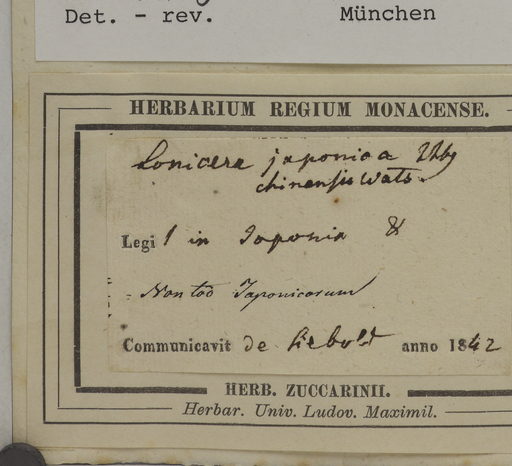 Det. - rev. München
HERBARIUM REGIUM MONACENSE.
Lonicera japonica Thbg
chinensis Wats.
Legi in Japonia
Nontoo Japonicorum
Communicavit de Siebold anno 1842
HERB. ZUCCARINII.
Herbar. Univ. Ludov. Maximil.